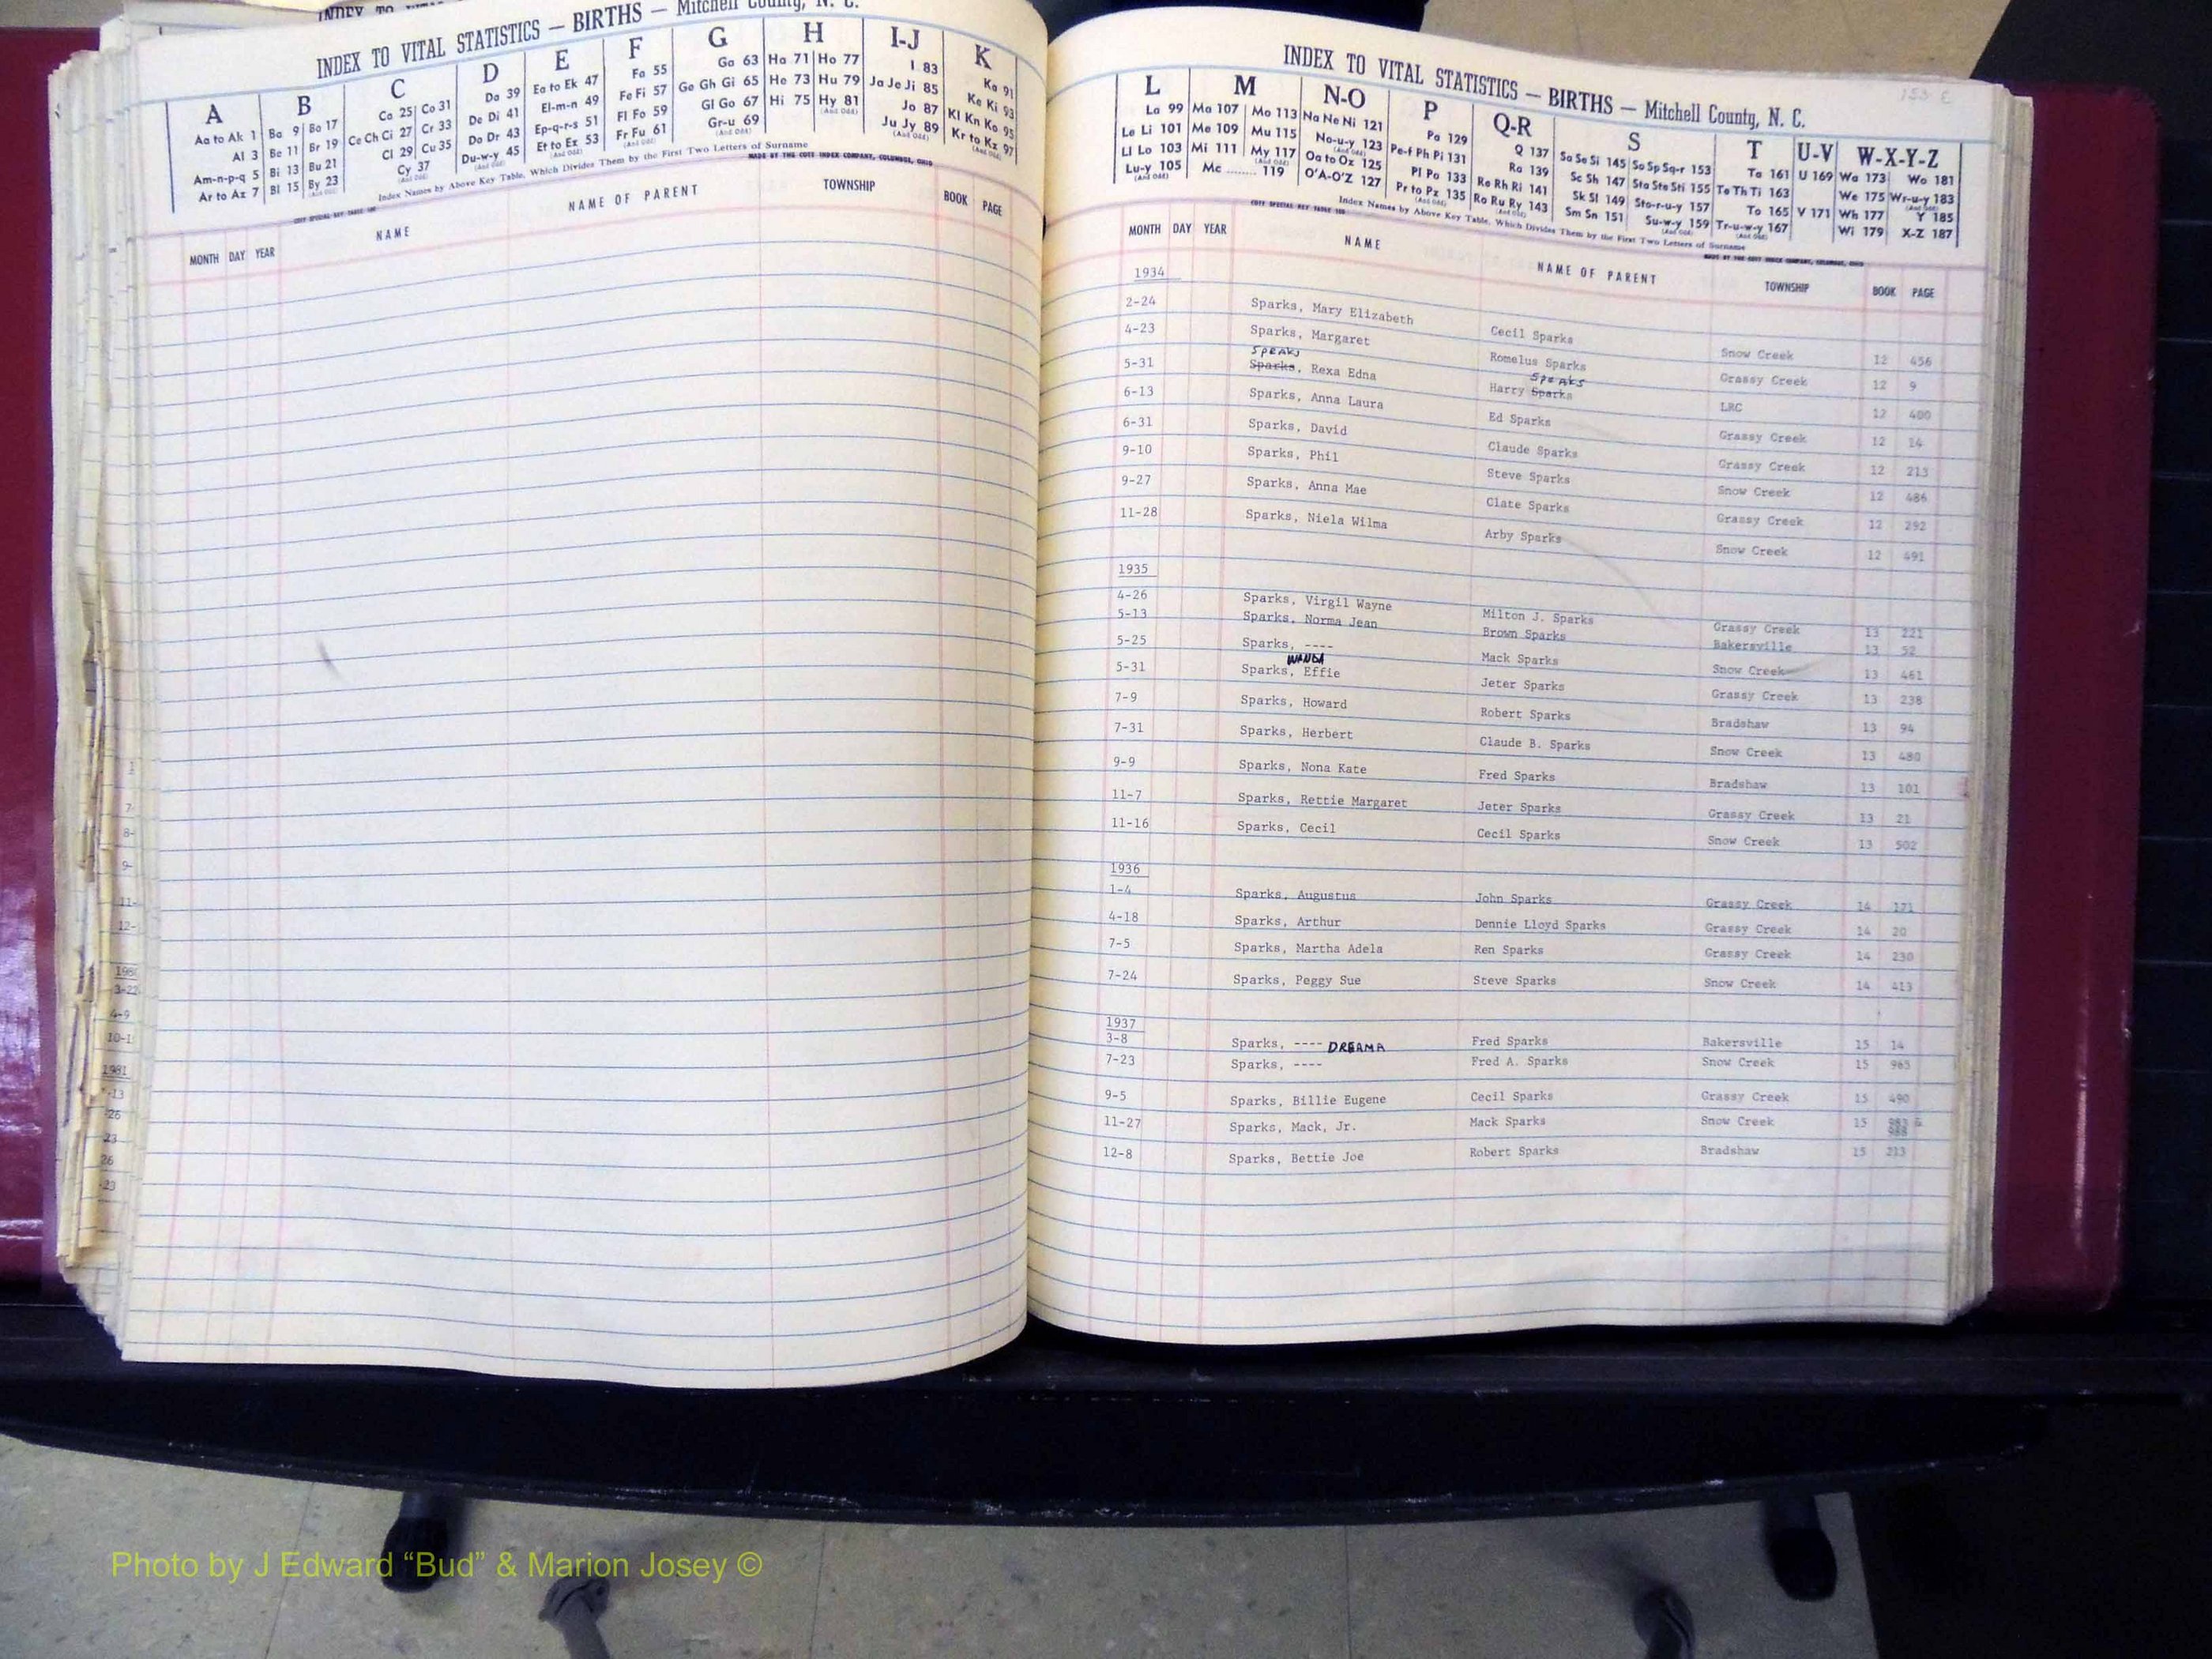 INDEX TO VITAL STATISTICS — BIRTHS — Mitchell County, N. C.
A B C D E F G H I-J K
Aa to Ak 1 Ba 9 Bo 17 Ca 25 Co 31 Da 39 Ea to Ek 47 Fa 55 Ga 63 Ha 71 Ho 77 I 83 Ka 91
Al 3 Be 11 Br 19 Ce Ch Ci 27 Cr 33 De Di 41 El-m-n 49 Fe Fi 57 Ge Gh Gi 65 He 73 Hu 79 Ja Je Ji 85 Ke Ki 93
Am-n-p-q 5 Bi 13 Bu 21 Cl 29 Cu 35 Do Dr 43 Ep-q-r-s 51 Fl Fo 59 Gl Go 67 Hi 75 Hy 81 Jo 87 Kl Kn Ko 95
Ar to Az 7 Bl 15 By 23 Cy 37 Du-w-y 45 Et to Ez 53 Fr Fu 61 Gr-u 69 Ju Jy 89 Kr to Kz 97
Index Names by Above Key Table, Which Divides Them by the First Two Letters of Surname
MADE BY THE COTT INDEX COMPANY, COLUMBUS, OHIO
MONTH DAY YEAR NAME NAME OF PARENT TOWNSHIP BOOK PAGE
INDEX TO VITAL STATISTICS — BIRTHS — Mitchell County, N. C.
153 E
L M N-O P Q-R S T U-V W-X-Y-Z
La 99 Ma 107 Mo 113 Na Ne Ni 121 Pa 129 Q 137 Sa Se Si 145 So Sp Sq-r 153 Ta 161 U 169 Wa 173 Wo 181
Le Li 101 Me 109 Mu 115 No-u-y 123 Pe-f Ph Pi 131 Ra 139 Sc Sh 147 Sta Ste Sti 155 Te Th Ti 163 We 175 Wr-u-y 183
Ll Lo 103 Mi 111 My 117 Oa to Oz 125 Pl Po 133 Re Rh Ri 141 Sk Sl 149 Sto-r-u-y 157 To 165 V 171 Wh 177 Y 185
Lu-y 105 Mc ........ 119 O'A-O'Z 127 Pr to Pz 135 Ro Ru Ry 143 Sm Sn 151 Su-w-y 159 Tr-u-w-y 167 Wi 179 X-Z 187
Index Names by Above Key Table, Which Divides Them by the First Two Letters of Surname
MADE BY THE COTT INDEX COMPANY, COLUMBUS, OHIO
MONTH DAY YEAR NAME NAME OF PARENT TOWNSHIP BOOK PAGE
1934
2-24 Sparks, Mary Elizabeth Cecil Sparks Snow Creek 12 456
4-23 Sparks, Margaret Romelus Sparks Grassy Creek 12 9
SPEAKS Speaks
5-31 Sparks, Rexa Edna Harry Sparks LRC 12 400
6-13 Sparks, Anna Laura Ed Sparks Grassy Creek 12 14
6-31 Sparks, David Claude Sparks Grassy Creek 12 213
9-10 Sparks, Phil Steve Sparks Snow Creek 12 486
9-27 Sparks, Anna Mae Clate Sparks Grassy Creek 12 292
11-28 Sparks, Niela Wilma Arby Sparks Snow Creek 12 491
1935
4-26 Sparks, Virgil Wayne Milton J. Sparks Grassy Creek 13 221
5-13 Sparks, Norma Jean Brown Sparks Bakersville 13 52
5-25 Sparks, ---- Mack Sparks Snow Creek 13 461
WANDA
5-31 Sparks, Effie Jeter Sparks Grassy Creek 13 238
7-9 Sparks, Howard Robert Sparks Bradshaw 13 94
7-31 Sparks, Herbert Claude B. Sparks Snow Creek 13 480
9-9 Sparks, Nona Kate Fred Sparks Bradshaw 13 101
11-7 Sparks, Rettie Margaret Jeter Sparks Grassy Creek 13 21
11-16 Sparks, Cecil Cecil Sparks Snow Creek 13 502
1936
1-4 Sparks, Augustus John Sparks Grassy Creek 14 171
4-18 Sparks, Arthur Dennie Lloyd Sparks Grassy Creek 14 20
7-5 Sparks, Martha Adela Ren Sparks Grassy Creek 14 230
7-24 Sparks, Peggy Sue Steve Sparks Snow Creek 14 413
1937
3-8 Sparks, ---- DREAMA Fred Sparks Bakersville 15 14
7-23 Sparks, ---- Fred A. Sparks Snow Creek 15 965
9-5 Sparks, Billie Eugene Cecil Sparks Grassy Creek 15 490
11-27 Sparks, Mack, Jr. Mack Sparks Snow Creek 15 983 &
988
12-8 Sparks, Bettie Joe Robert Sparks Bradshaw 15 213
1981
Photo by J Edward “Bud” & Marion Josey ©